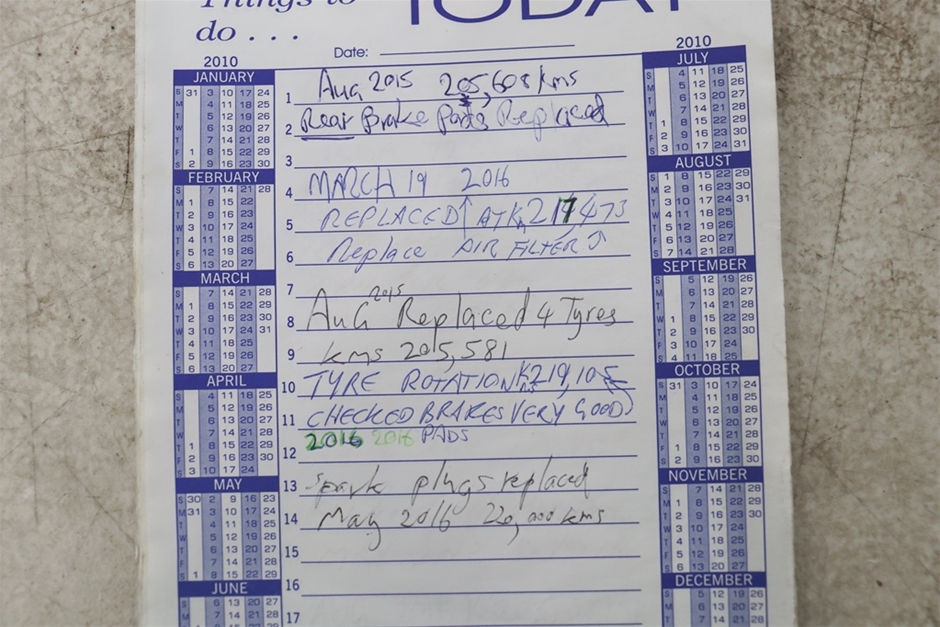 Things to
do . . .
TODAY
Date:
2010
2010
JANUARY
S 31 3 10 17 24
M 4 11 18 25
T 5 12 19 26
W 6 13 20 27
T 7 14 21 28
F 1 8 15 22 29
S 2 9 16 23 30
FEBRUARY
S 7 14 21 28
M 1 8 15 22
T 2 9 16 23
W 3 10 17 24
T 4 11 18 25
F 5 12 19 26
S 6 13 20 27
MARCH
S 7 14 21 28
M 1 8 15 22 29
T 2 9 16 23 30
W 3 10 17 24 31
T 4 11 18 25
F 5 12 19 26
S 6 13 20 27
APRIL
S 4 11 18 25
M 5 12 19 26
T 6 13 20 27
W 7 14 21 28
T 1 8 15 22 29
F 2 9 16 23 30
S 3 10 17 24
MAY
S 30 2 9 16 23
M 31 3 10 17 24
T 4 11 18 25
W 5 12 19 26
T 6 13 20 27
F 7 14 21 28
S 1 8 15 22 29
JUNE
S 6 13 20 27
M 7 14 21 28
1 Aug 2015 205,608 kms
2 Rear Brake Pads Replaced
3
4 MARCH 19 2016
5 REPLACED ↑ AT Km 217473
6 Replace AIR FILTER
7 2015
8 AuG Replaced 4 Tyres
9 kms 205,581
10 TYRE ROTATION Kms 219,105
11 CHECKED BRAKES VERY GOOD
12 2016 2016 PADS
13 Spark plugs replaced
14 May 2016 220,000 kms
15
16
17
JULY
S 4 11 18 25
M 5 12 19 26
T 6 13 20 27
W 7 14 21 28
T 1 8 15 22 29
F 2 9 16 23 30
S 3 10 17 24 31
AUGUST
S 1 8 15 22 29
M 2 9 16 23 30
T 3 10 17 24 31
W 4 11 18 25
T 5 12 19 26
F 6 13 20 27
S 7 14 21 28
SEPTEMBER
S 5 12 19 26
M 6 13 20 27
T 7 14 21 28
W 1 8 15 22 29
T 2 9 16 23 30
F 3 10 17 24
S 4 11 18 25
OCTOBER
S 31 3 10 17 24
M 4 11 18 25
T 5 12 19 26
W 6 13 20 27
T 7 14 21 28
F 1 8 15 22 29
S 2 9 16 23 30
NOVEMBER
S 7 14 21 28
M 1 8 15 22 29
T 2 9 16 23 30
W 3 10 17 24
T 4 11 18 25
F 5 12 19 26
S 6 13 20 27
DECEMBER
S 5 12 19 26
M 6 13 20 27
T 7 14 21 28